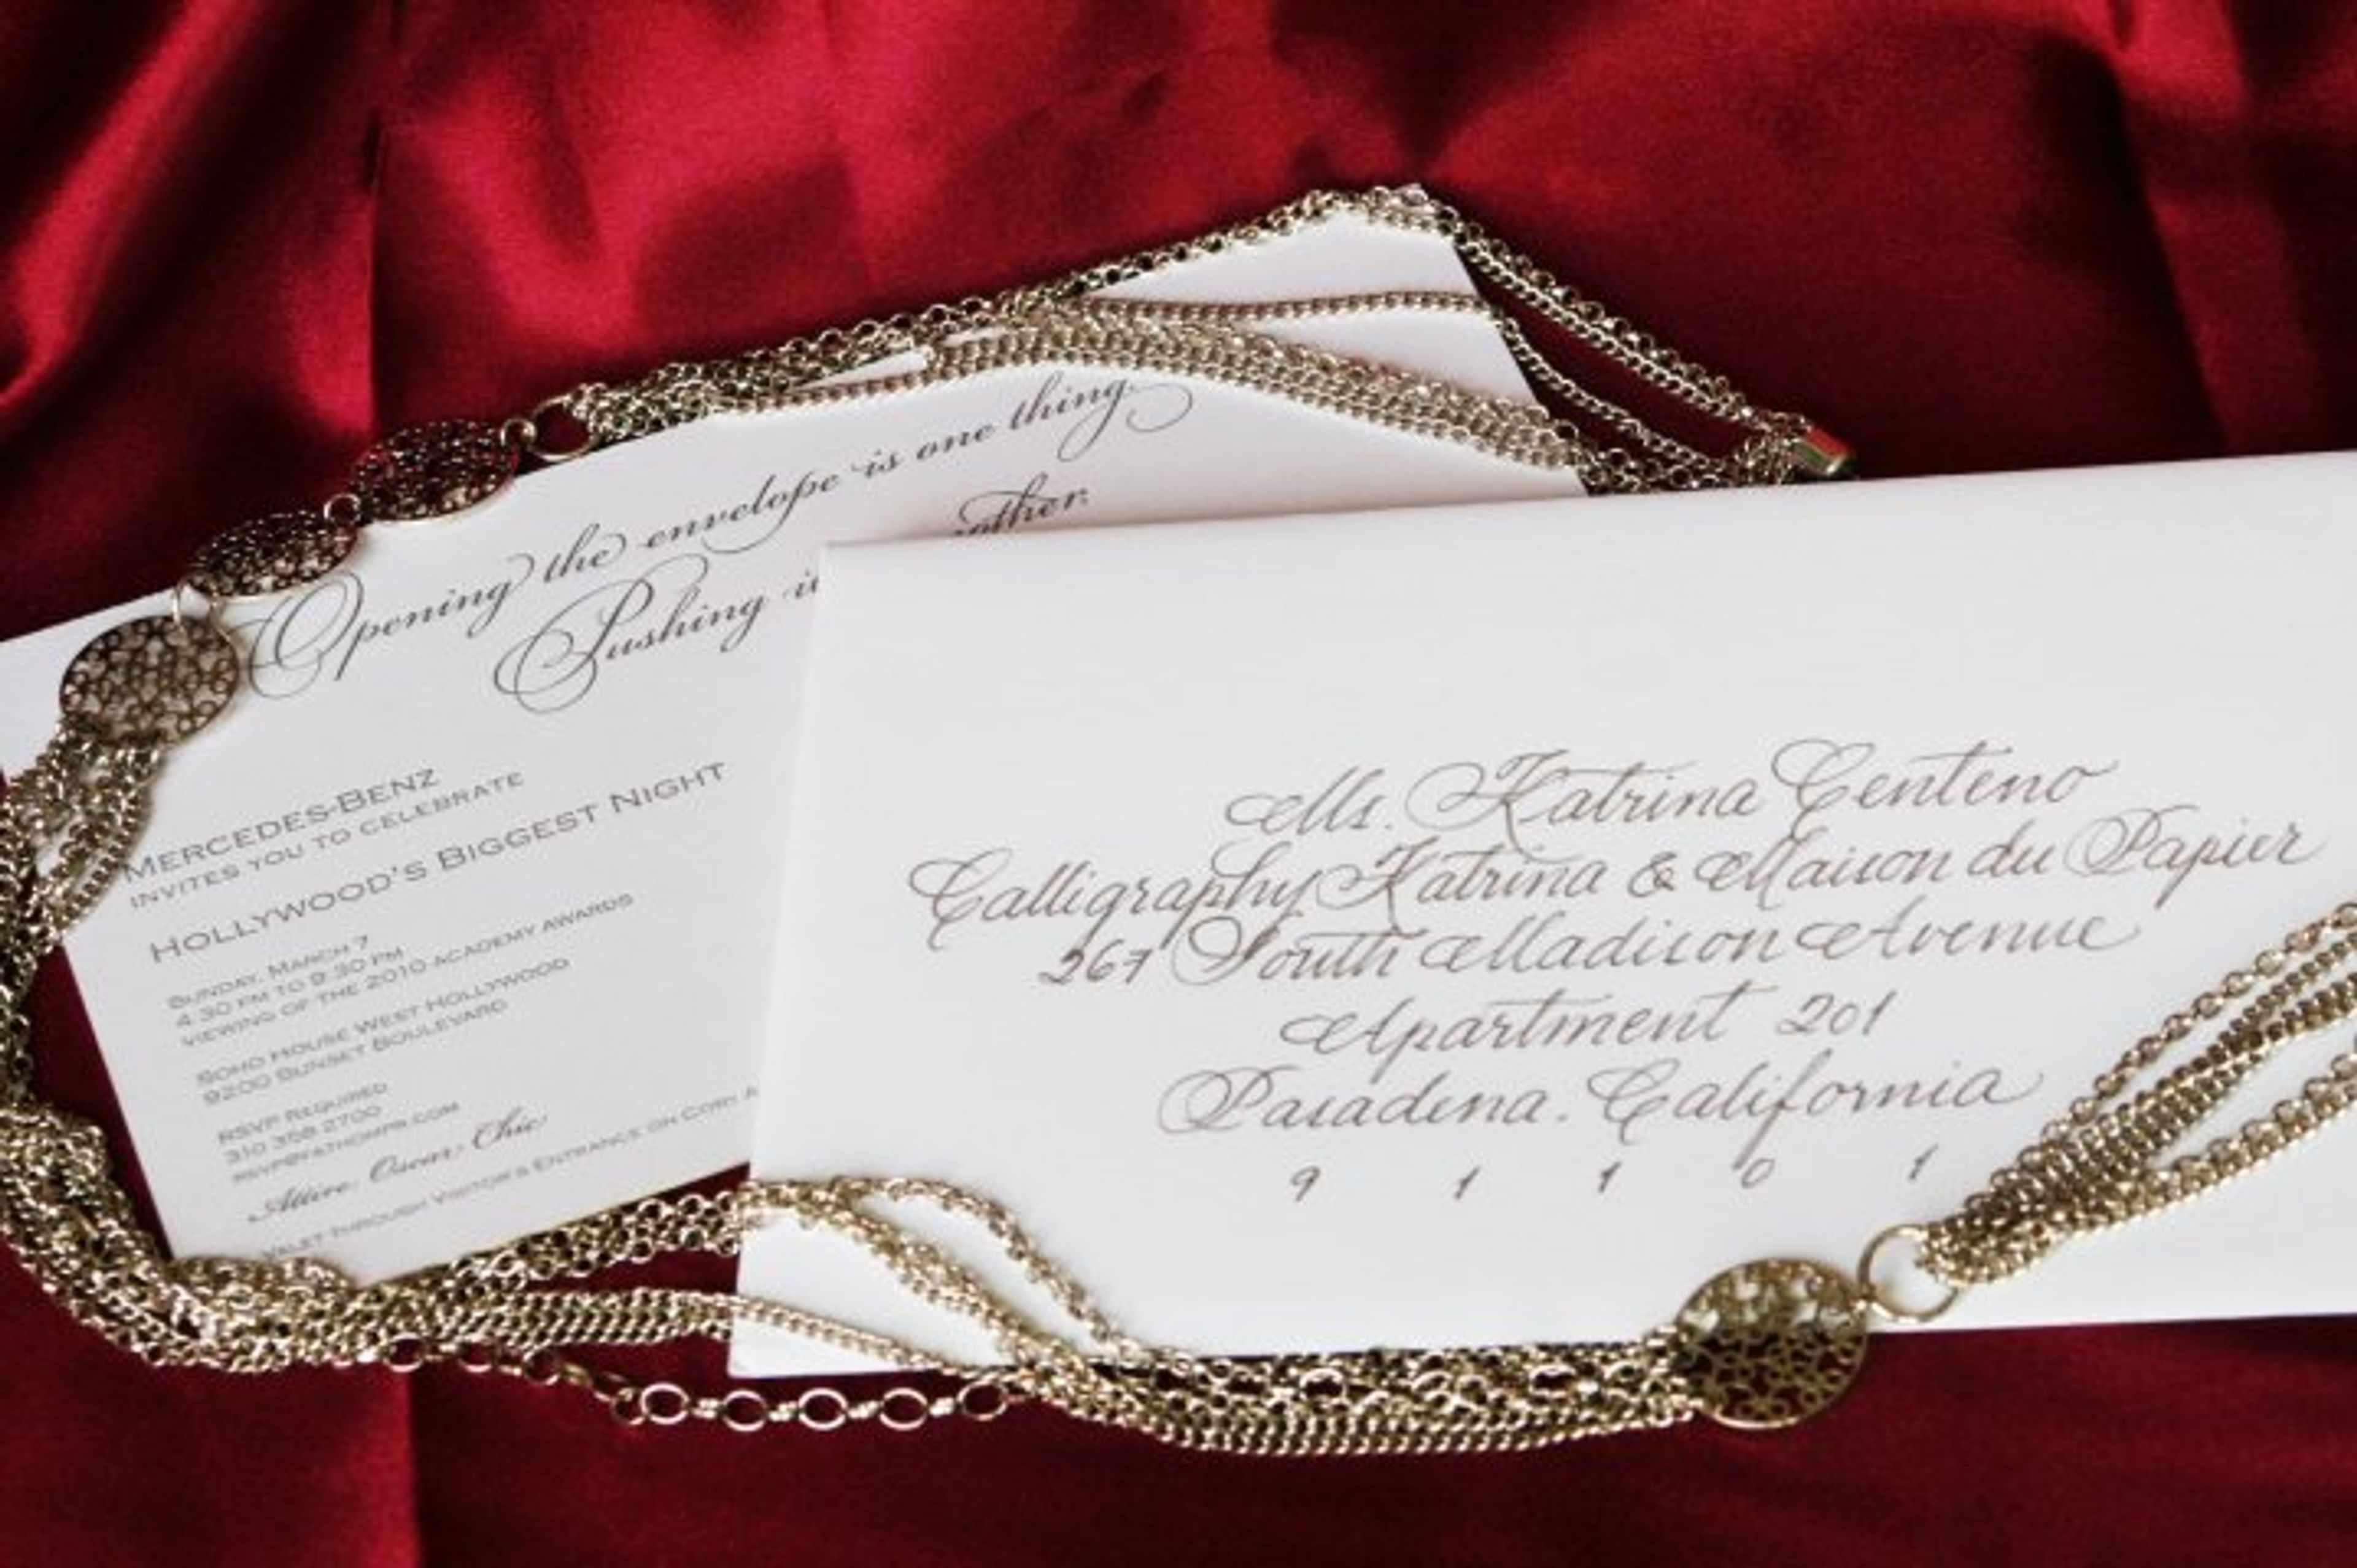 Opening the envelope is one thing.
Pushing it
other.
MERCEDES-BENZ
INVITES YOU TO CELEBRATE
HOLLYWOOD'S BIGGEST NIGHT
SUNDAY, MARCH 7
4:30 PM TO 9:30 PM
VIEWING OF THE 2010 ACADEMY AWARDS
SOHO HOUSE WEST HOLLYWOOD
9200 SUNSET BOULEVARD
RSVP REQUIRED
310 358 2700
Attire: Oscar Chic
VALET THROUGH VISITOR'S ENTRANCE ON CORY A
Ms. Katrina Centeno
Calligraphy Katrina & Maison du Papier
267 South Madison Avenue
Apartment 201
Pasadena. California
9 1 1 0 1